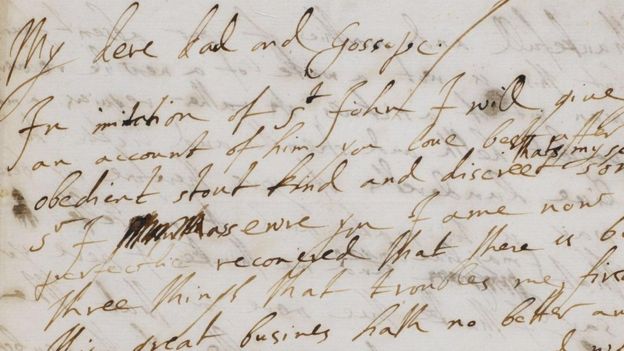 My dere dad and Gossope.
In imitation of St John I will give
an account of him you love best after
thats my se
obedient stout kind and discreet son
St I assewre you I ame now
perfectlie recovered that there is b
three things that troubles me, firs
this great busines hath no better an